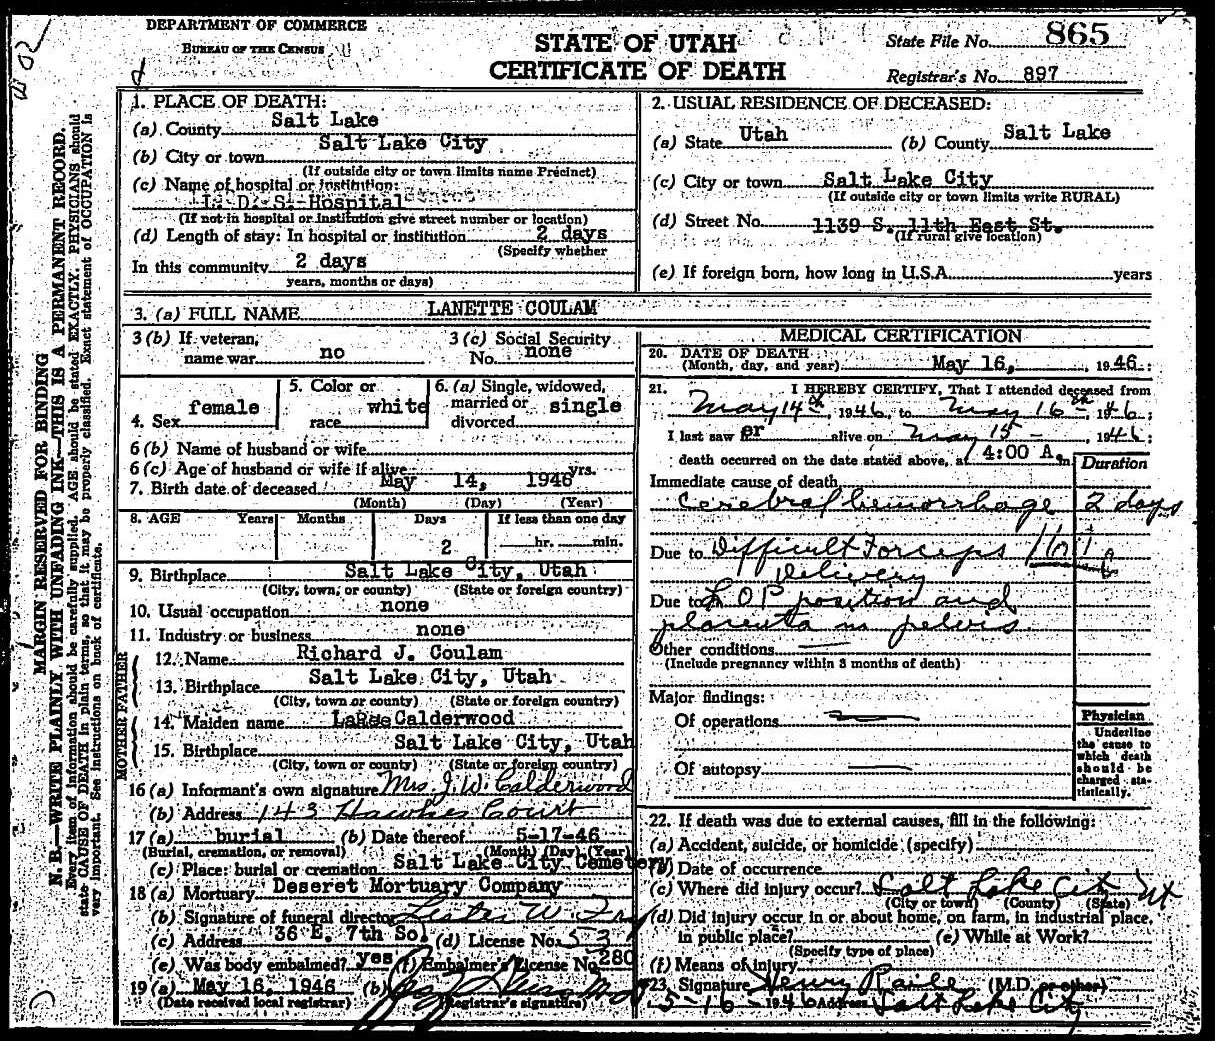 DEPARTMENT OF COMMERCE
BUREAU OF THE CENSUS
STATE OF UTAH
CERTIFICATE OF DEATH
State File No. 865
Registrar's No. 897
MARGIN RESERVED FOR BINDING
N. B.—WRITE PLAINLY WITH UNFADING INK—THIS IS A PERMANENT RECORD.
Every item of information should be carefully supplied. AGE should be stated EXACTLY. PHYSICIANS should
state CAUSE OF DEATH in plain terms, so that it may be properly classified. Exact statement of OCCUPATION is
very important. See instructions on back of certificate.
1. PLACE OF DEATH:
(a) County Salt Lake
(b) City or town Salt Lake City
(If outside city or town limits name Precinct)
(c) Name of hospital or institution:
L. D. S. Hospital
(If not in hospital or institution give street number or location)
(d) Length of stay: In hospital or institution 2 days
(Specify whether
In this community 2 days
years, months or days)
2. USUAL RESIDENCE OF DECEASED:
(a) State Utah (b) County Salt Lake
(c) City or town Salt Lake City
(If outside city or town limits write RURAL)
(d) Street No. 1139 S. 11th East St.
(If rural give location)
(e) If foreign born, how long in U.S.A. years
3. (a) FULL NAME LANETTE COULAM
3 (b) If veteran, name war no
3 (c) Social Security No. none
4. Sex female
5. Color or race white
6. (a) Single, widowed, married or divorced single
6 (b) Name of husband or wife
6 (c) Age of husband or wife if alive yrs.
7. Birth date of deceased May 14, 1946
(Month) (Day) (Year)
8. AGE Years Months Days If less than one day
2 hr. min.
9. Birthplace Salt Lake City, Utah
(City, town, or county) (State or foreign country)
10. Usual occupation none
11. Industry or business none
FATHER
12. Name Richard J. Coulam
13. Birthplace Salt Lake City, Utah
(City, town or county) (State or foreign country)
MOTHER
14. Maiden name LaRue Calderwood
15. Birthplace Salt Lake City, Utah
(City, town or county) (State or foreign country)
16 (a) Informant's own signature Mrs. J. W. Calderwood
(b) Address 143 Hawkes Court
17 (a) burial (b) Date thereof 5-17-46
(Burial, cremation, or removal) (Month) (Day) (Year)
(c) Place: burial or cremation Salt Lake City Cemetery
18 (a) Mortuary Deseret Mortuary Company
(b) Signature of funeral director Lester W.
(c) Address 36 E. 7th So. (d) License No. 53
(e) Was body embalmed? yes (f) Embalmer's License No. 280
19 (a) May 16, 1946 (b)
(Date received local registrar) (Registrar's signature)
MEDICAL CERTIFICATION
20. DATE OF DEATH
(Month, day, and year) May 16, 1946.
21. I HEREBY CERTIFY, That I attended deceased from
May 14th, 1946, to May 16th 1946;
I last saw er alive on May 15 -, 1946;
death occurred on the date stated above, at 4:00 A. m
Duration
Immediate cause of death
cerebral hemorrhage 2 days
Due to Difficult Forceps
Delivery
Due to L O P position and
placenta in pelvis
Other conditions
(Include pregnancy within 3 months of death)
Major findings:
Of operations
Of autopsy
Physician
Underline
the cause to
which death
should be
charged sta-
tistically.
22. If death was due to external causes, fill in the following:
(a) Accident, suicide, or homicide (specify)
(b) Date of occurrence
(c) Where did injury occur? Salt Lake City Ut
(City or town) (County) (State)
(d) Did injury occur in or about home, on farm, in industrial place,
in public place? (e) While at Work?
(Specify type of place)
(f) Means of injury
23. Signature Henry Raile (M.D. or other)
5-16-1946 Address Salt Lake City